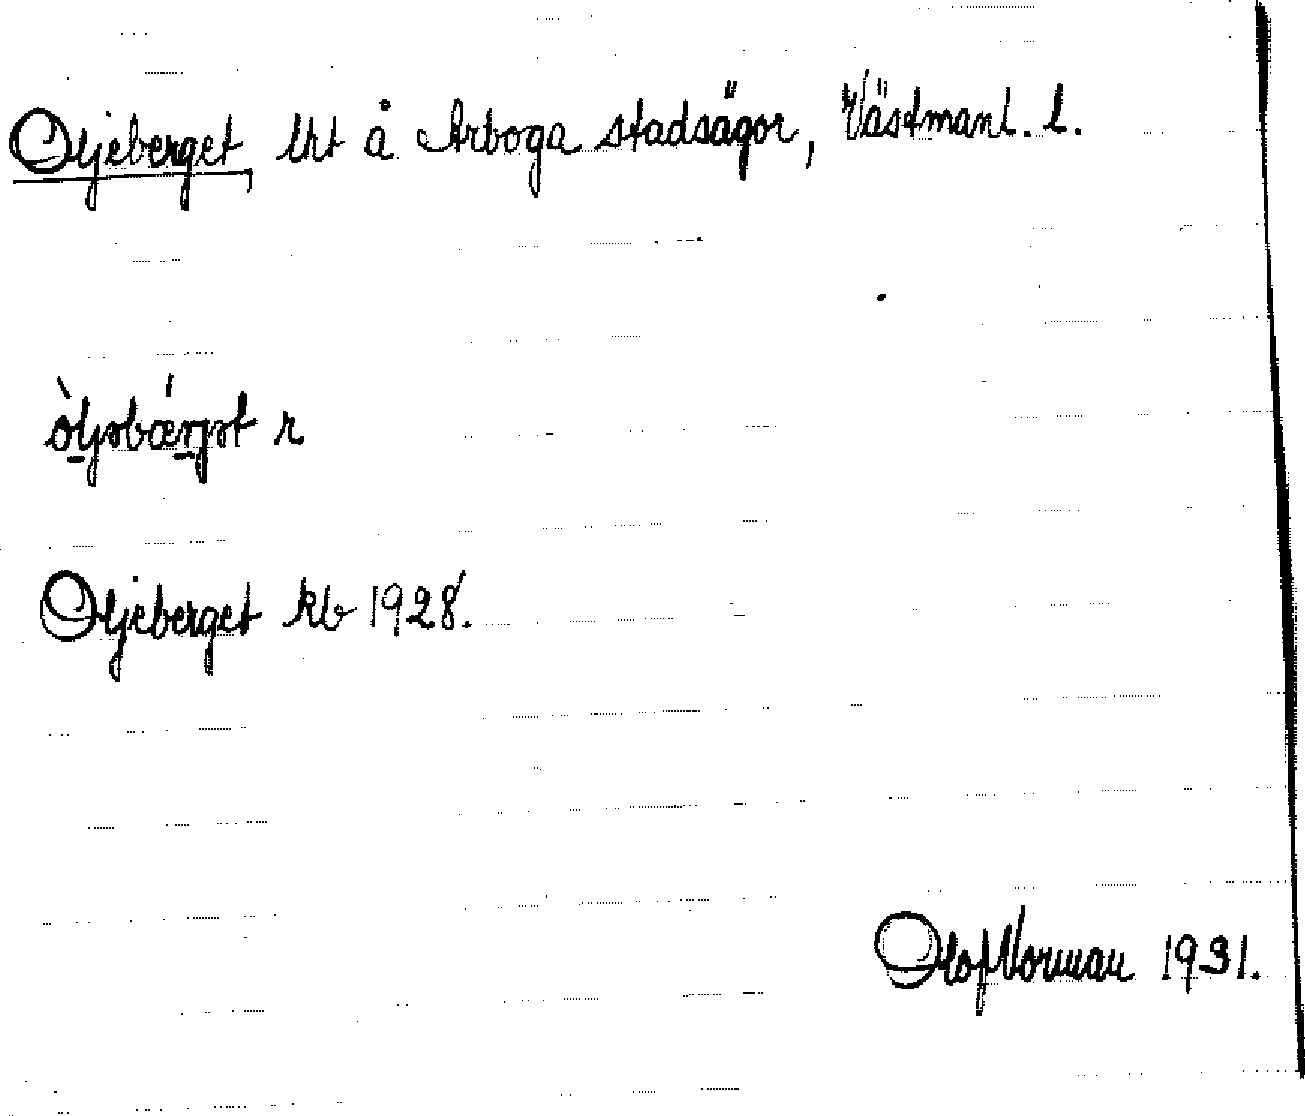 Oljeberget, lht å Arboga stadsägor, Västmanl. l.
òljəbǽrjət r
Oljeberget kb 1928.
Olof Norman 1931.